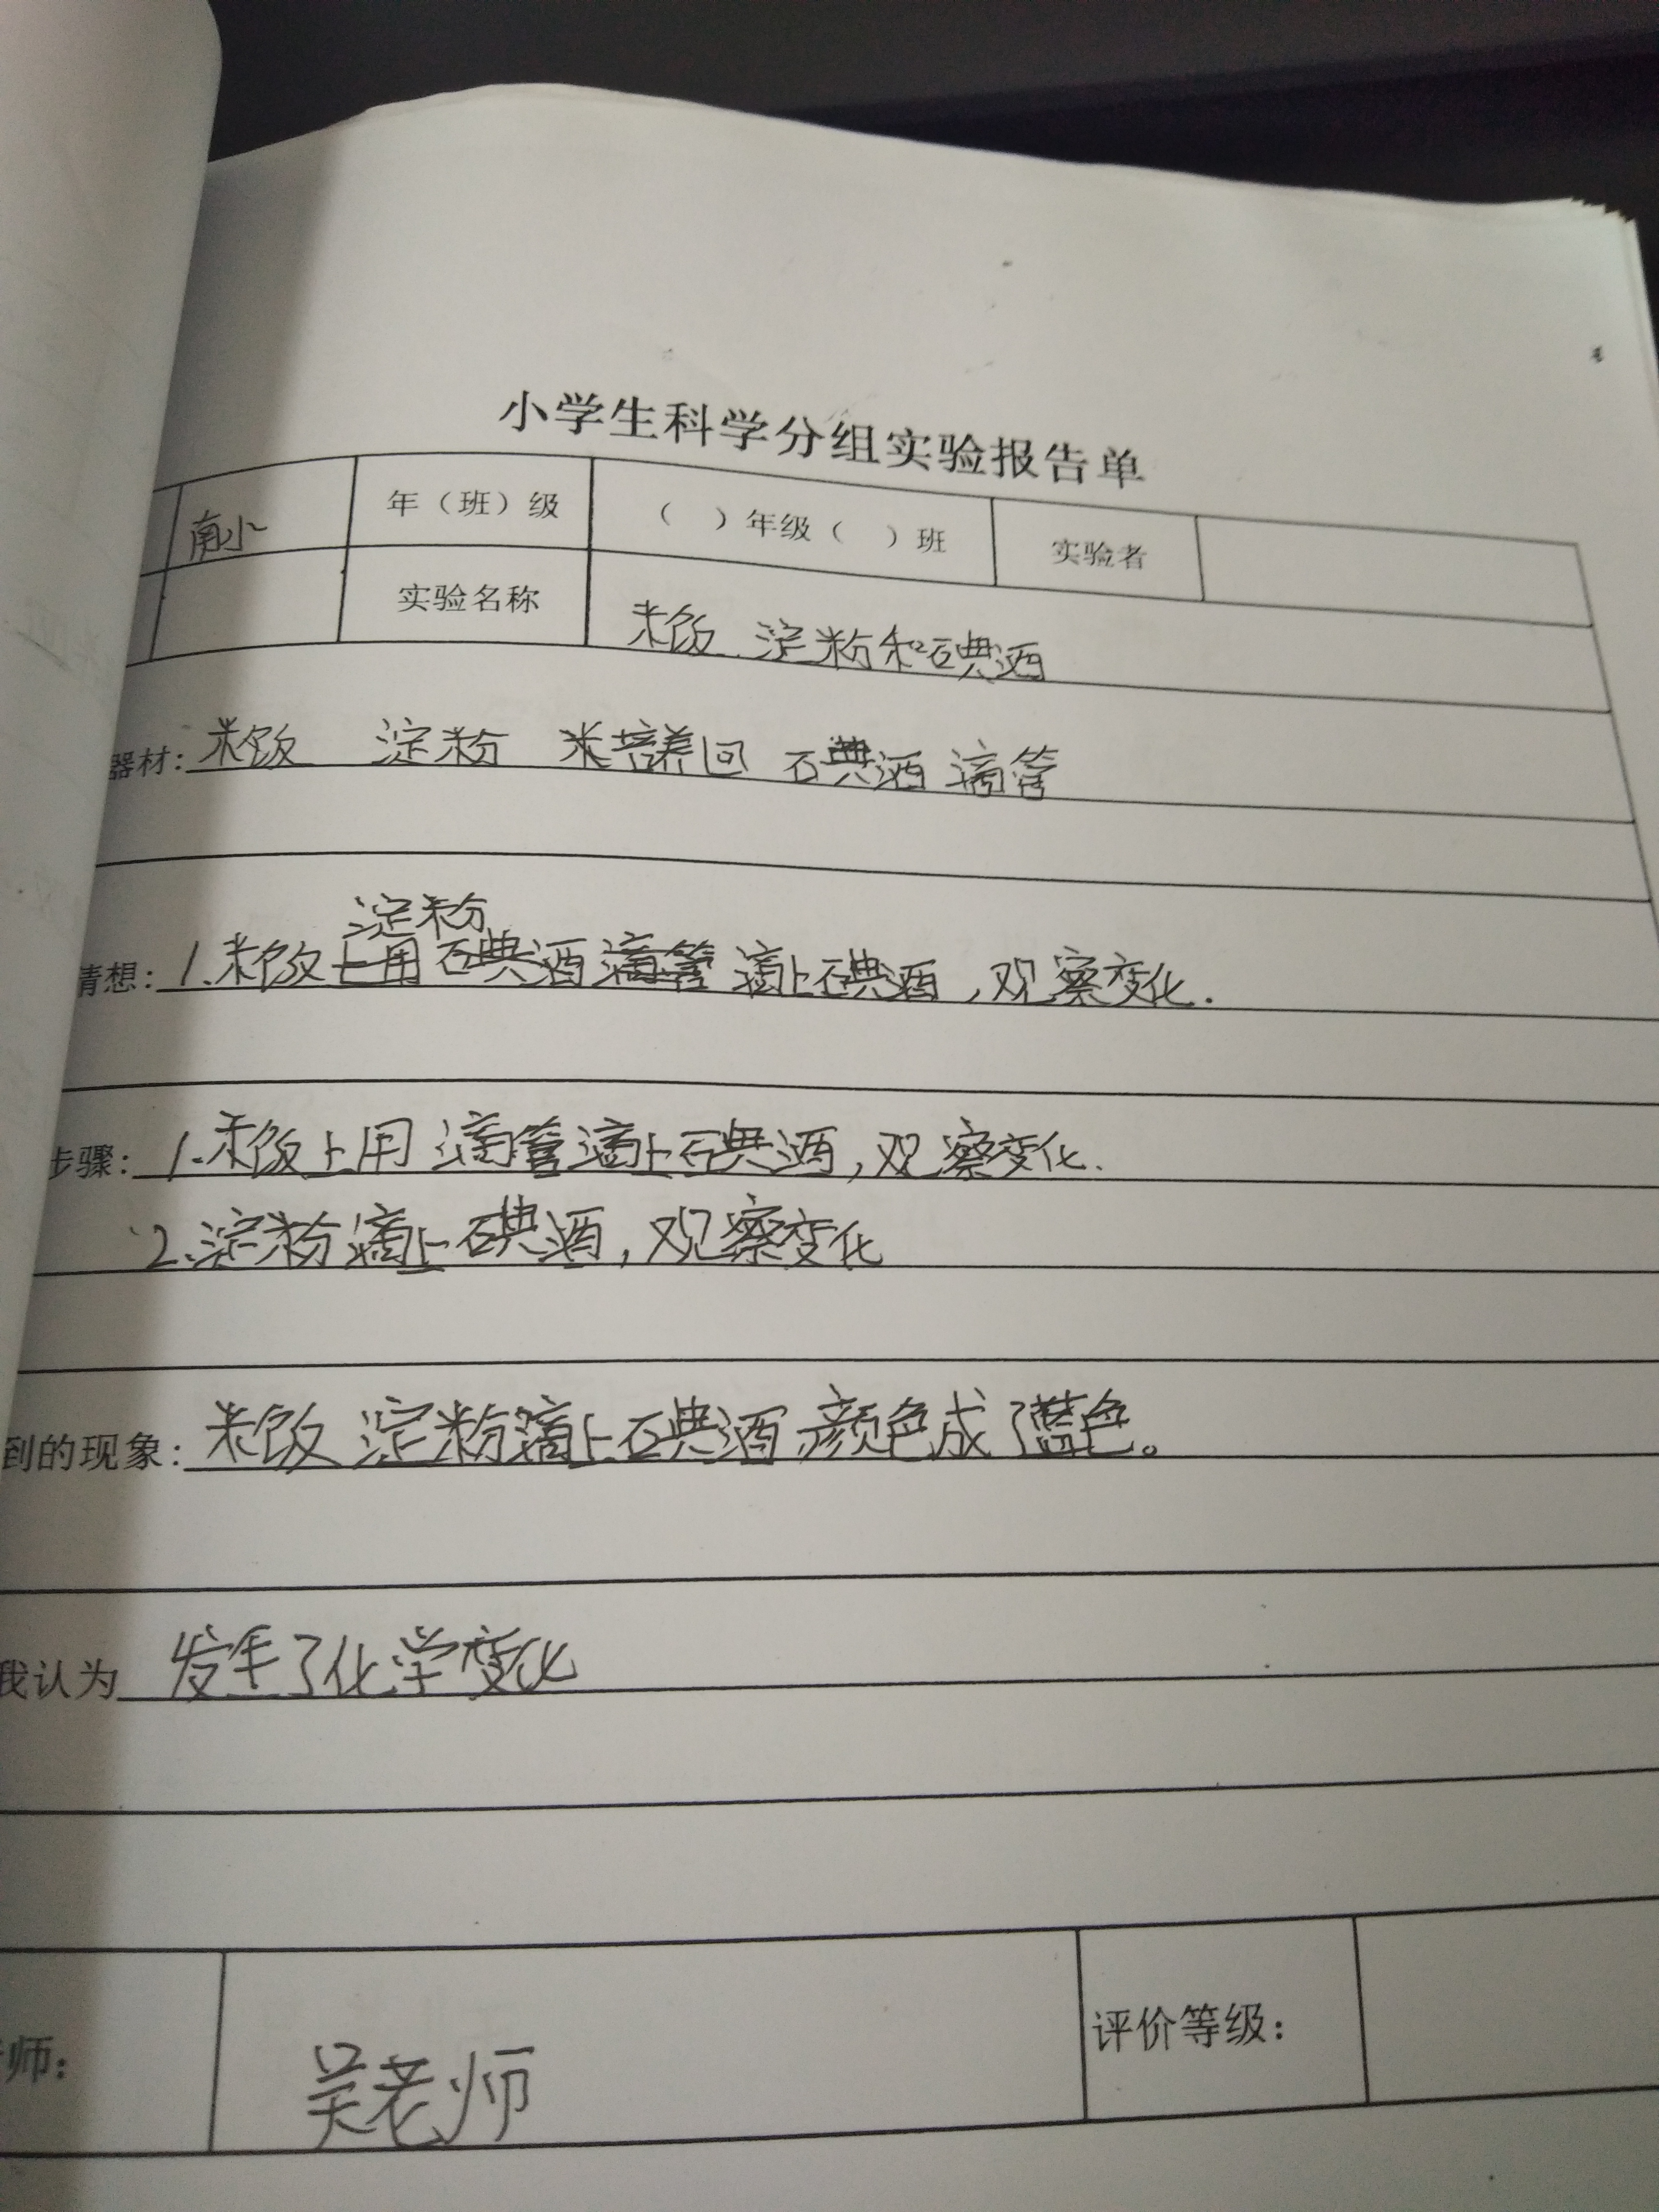 小学生科学分组实验报告单
南小 年（班）级 （ ）年级（ ）班 实验者
实验名称 米饭 淀粉和碘酒
器材：米饭 淀粉 米培养回 碘酒 滴管
淀粉
猜想：1.米饭上用碘酒滴管 滴上碘酒，观察变化.
步骤：1.米饭上用滴管滴上碘酒，观察变化.
2.淀粉滴上碘酒，观察变化
到的现象：米饭 淀粉滴上碘酒 颜色成了蓝色。
我认为 发生了化学变化
师： 吴老师 评价等级：